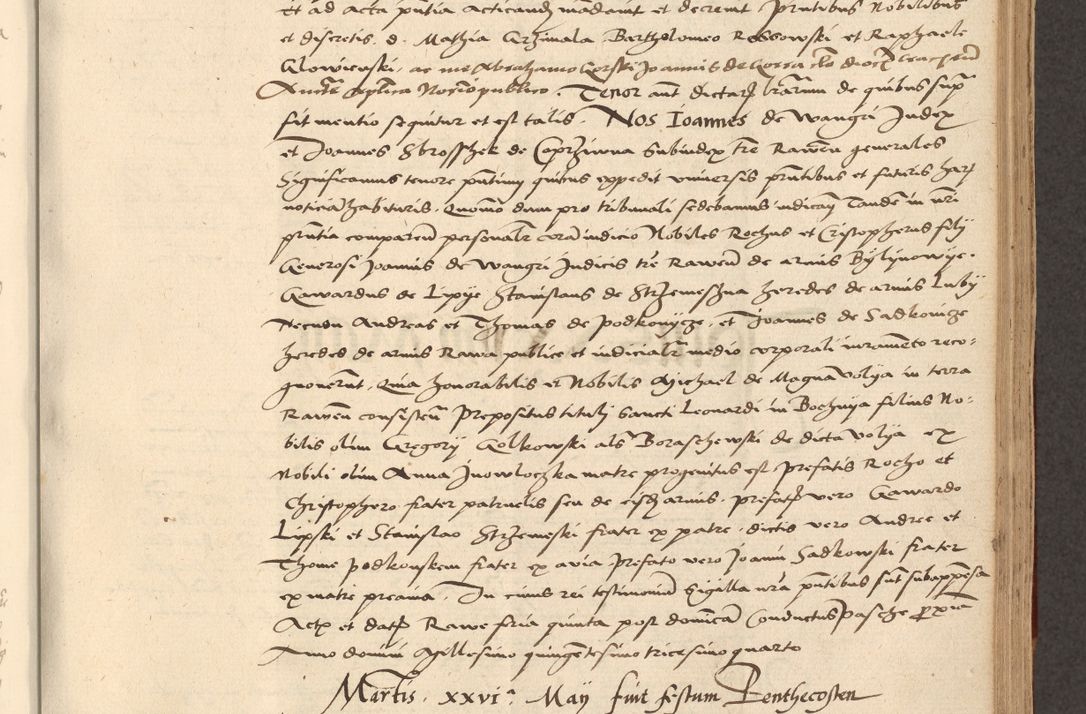 et ad acta pntia acticand mandavit et decrevit prntibus Nobilibus
et discretis d. Mathia Grzimala Bertholomeo Rossowski et Raphaele
Glowienski, ac me Abrahamo Gorski Joannis de Gorra clo dioc Cracien
Auctte aplica Notario publico. Tenor aut dictar lrarum de quibus sup
fit mentio sequitur et est talis. Nos Ioannes de Wangri Judex
et Joannes Sbrosshek de Coprziwna Subiudex tre Rawen generales
Significamus tenore pntium quibus expedit universis pntibus et futuris har
noticia habituris. Quomo dum pro tribunali sedebamus iudican Tande in nri
pntia comparen personalr cora iudicio Nobiles Rochus et Cristopherus filij
Generosi Joannis de Wangri Judicis tre Rawen de armis Bylynowye.
Gawardus de Lipye Stanislaus de Strzemeszna heredes de armis Luby
Necnon Andreas et Thomas de podkonycze, et Joannes de Sadkowicze
heredes de armis Rawa publice et iudicialr medio corporali iuramento reco-
gnoverut. Quia honorabilis et Nobilis Michael de Magna volya in terra
Rawen consisten Prepositus tituli Sancti Leonardi in Bochnya filius No-
bilis olim Gregory Golkowski als Boraschewski de dicta volya ex
Nobili olim Anna Jnowloczka matre progenitus est prefatis Rocho et
Christophero frater patruelis seu de eisd armis. prefato vero Gawardo
Lipski et Stanislao Strzemeski frater ex patre, dictis vero Andree et
Thome podkonskem frater ex avia. Prefato vero Joanni Sadkowski frater
ex matre In cuius rei testimoniu Sigilla nra pntibus sut subappesa
Act et dat Rawe feria quinta post dominca Conductus Pasche pxia
Anno domini Millesimo quingetesimo tricesimo quarto
Martis. xxvi.a May fuit festum Penthecosten